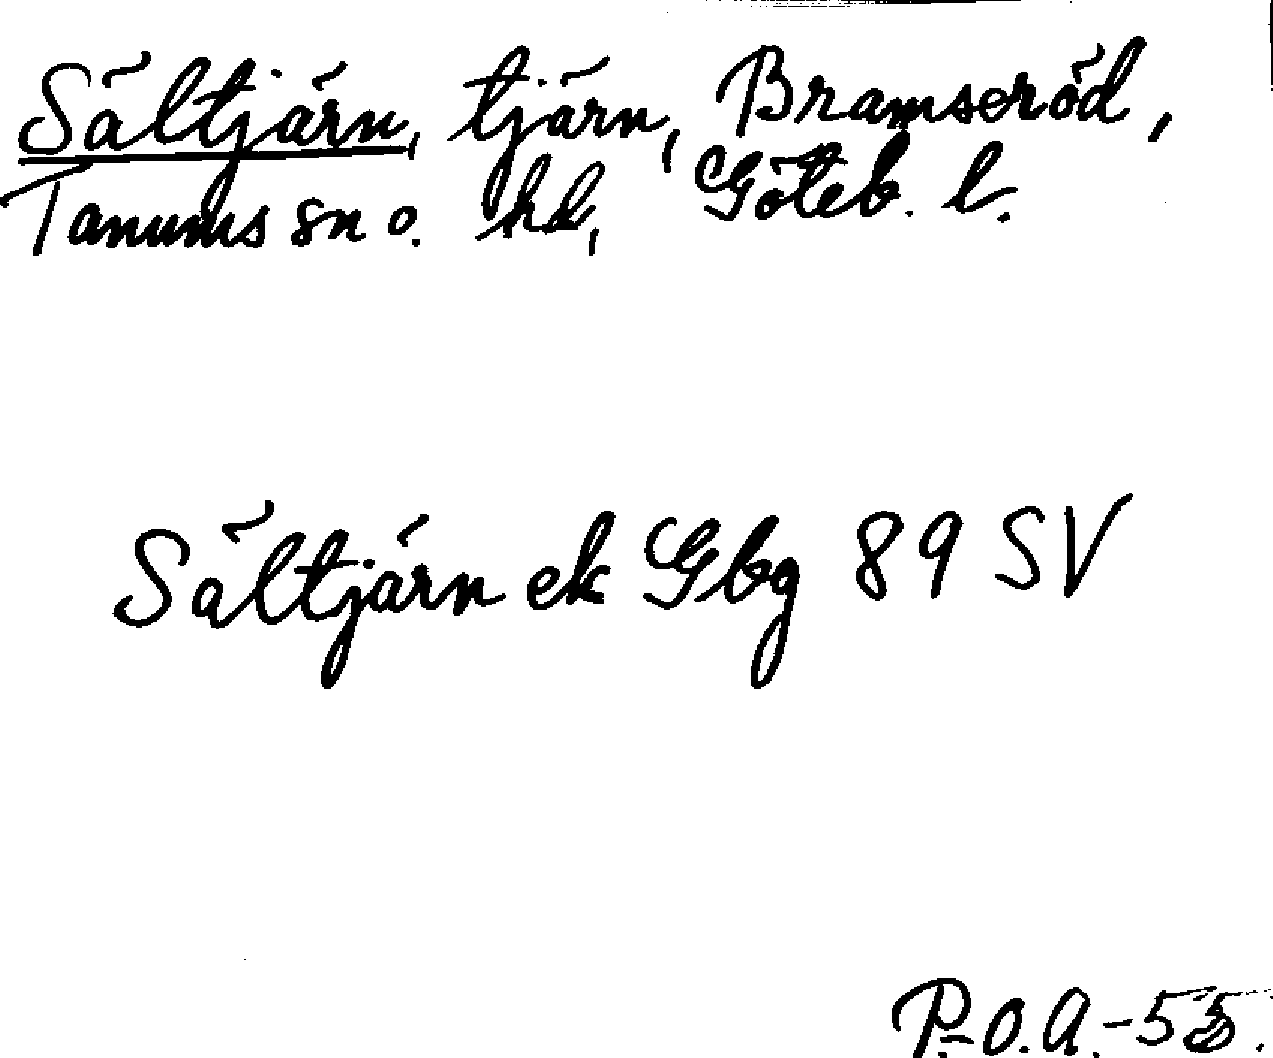 Sältjärn, tjärn, Bramseröd,
Tanums sn o. hd, Göteb. l.
Sältjärn ek Gbg 89 SV
P.-O.A.-55.